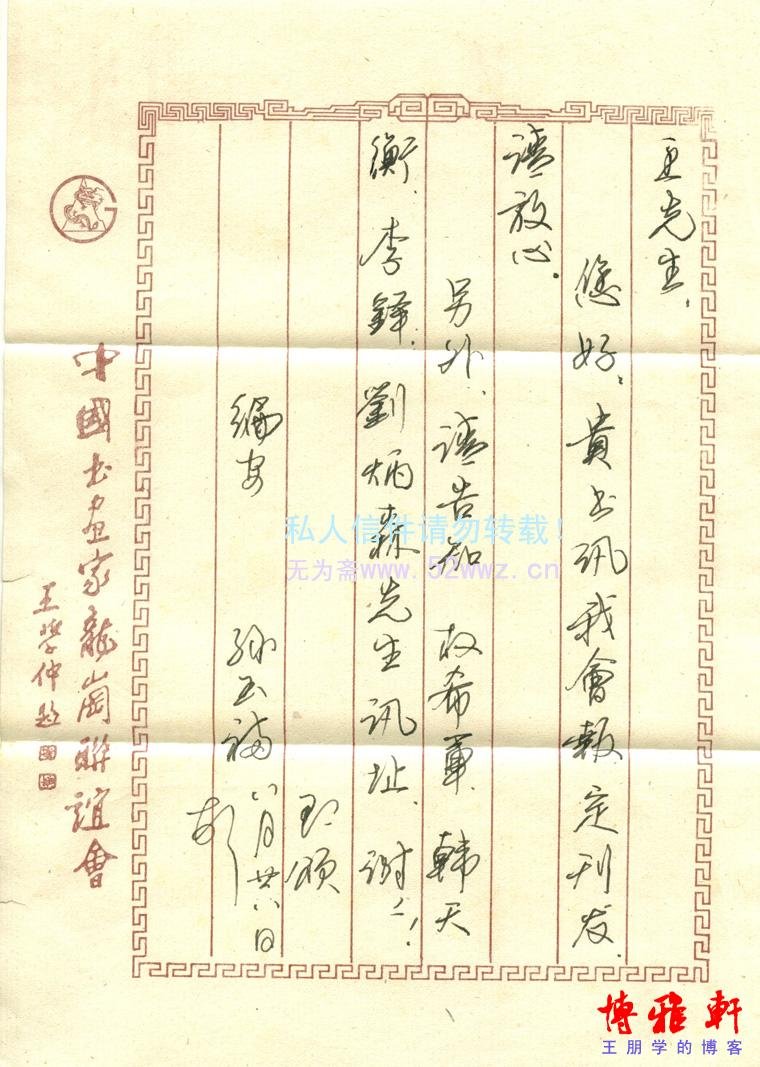 王先生：
您好：貴书讯我會報定刊发.
請放心.
另外、請告知 权希軍、韩天
衡、李鐸、劉炳森先生讯址、谢々！
即颂
编安
孙玉福 八月廿八日
中國书画家龍崗聯誼會
王学仲题
私人信件请勿转载!
无为斋www.52wwz.cn
博雅軒
王朋学的博客